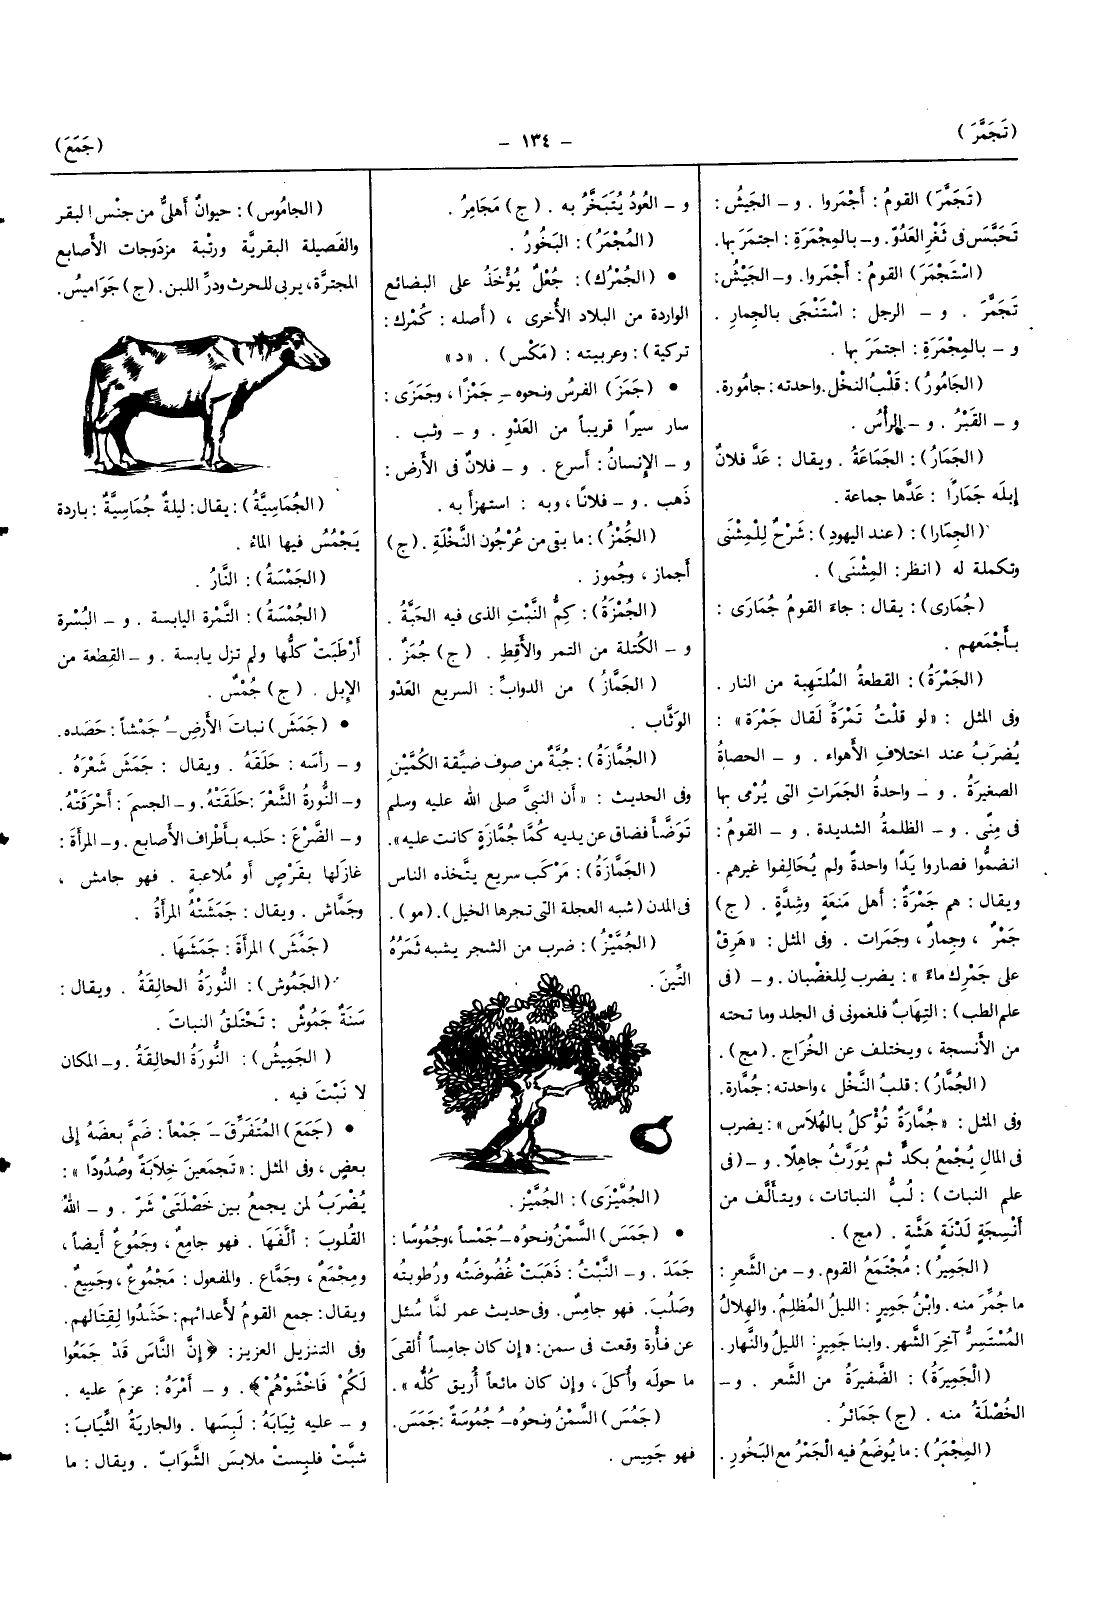 (تَجَمَّرَ)
– ١٣٤ –
(جَمَعَ)
(تَجَمَّرَ) القومُ : أَجْمَروا . و – الجَيشُ :
تَحَبَّسَ فى ثَغْرِ العَدُوّ . و– بالمِجْمَرَةِ : اجتمَرَ بها.
(اسْتَجْمَرَ) القومُ : أَجْمَروا. و– الجَيْشُ :
تَجَمَّرَ . و – الرجل : اسْتَنْجَى بالجِمارِ .
و – بالمِجْمَرَةِ : اجتمَرَ بها .
(الجَامُورُ) : قَلْبُ النخْل. واحدته : جامُورة.
و – القَبْرُ . و – الرأْسُ .
(الجَمَارُ) : الجَمَاعَةُ . ويقال : عَدَّ فلانٌ
إبلَه جَمَارًا : عَدَّها جماعة .
(الجِمَارا) : (عند اليهودِ) : شَرْحٌ لِلْمِشْنَى
وتكملة له (انظر : المِشْنَى) .
(جُمَارى) : يقال : جاءَ القومُ جُمَارَى :
بأَجْمَعهم .
(الجَمْرَةُ) : القطعةُ المُلتَهِبة من النار .
وفى المثل : «لو قلْتُ تَمْرَةً لَقال جَمْرَة» :
يُضرَبُ عند اختلافِ الأَهواء . و – الحصاةُ
الصغيرَةُ . و – واحدةُ الجَمَراتِ التى يُرْمَى بها
فى مِنًى . و – الظلمةُ الشديدة . و – القومُ :
انضمُّوا فصاروا يَدًا واحدةً ولم يُحَالِفوا غيرهم .
ويقال : هم جَمْرَةٌ : أهل مَنَعَةٍ وشِدَّةٍ . (ج)
جَمْرٌ ، وجِمارٌ ، وجَمَرات . وفى المثل : «هَرِقْ
على جَمْرِك ماءً» : يضرب لِلغضْبان . و – (فى
علم الطب) : التِهَابٌ فلغمونى فى الجلد وما تحته
من الأَنسجة ، ويختلف عن الخُرَاج . (مج) .
(الجُمَّارُ) : قلبُ النَّخْل ، واحدته : جُمَّارة.
وفى المثل : «جُمَّارَةٌ تُؤْكلُ بالهُلَاس» : يضرب
فى المالِ يُجْمعُ بكدٍّ ثم يُوَرَّثُ جاهلًا. و – (فى
علم النبات) : لُبُّ النباتات ، ويتأَلَّف من
أَنْسِجَةٍ لَدْنَةٍ هَشَّةٍ . (مج) .
(الجَمِيرُ) : مُجْتَمَعُ القوم. و – من الشَّعرِ :
ما جُمِّرَ منه. وابْنُ جَمِيرٍ : الليلُ المُظلِمُ. والهِلالُ
المُسْتَسِرُّ آخِرَ الشَّهر. وابنا جَميرٍ: الليلُ والنَّهار.
(الجَمِيرَةُ) : الضَّفِيرَةُ من الشَّعر . و –
الخُصْلَةُ منه . (ج) جَمَائرُ .
(المِجْمَرُ) : ما يُوضَعُ فيه الجَمْرُ مع البَخُورِ .
و – العُودُ يُتَبَخَّرُ به . (ج) مَجَامِرُ .
(المُجْمَرُ) : البَخُورُ .
• (الجُمْرُك) : جُعْلٌ يُؤْخَذُ على البضائع
الواردة من البلاد الأُخرى ، (أصله : كُمْرك :
تركية) : وعربيته : (مَكْس) . «د»
• (جَمَزَ) الفرسُ ونحوه –ِ جَمْزًا ، وجَمَزَى :
سار سيرًا قريباً من العَدْوِ . و – وثب .
و – الإنسانُ : أسرع . و – فلانٌ فى الأَرض :
ذَهب . و – فلانًا ، وبه : استهزأَ به .
(الجُمْزُ) : ما بقى من عُرْجُون النَّخْلَةِ . (ج)
أَجماز ، وجُموز .
(الجُمْزَةُ) : كِمُّ النَّبْتِ الذى فيه الحَبَّةُ .
و – الكُتلة من التمر والأَقِطِ . (ج) جُمَزٌ .
(الجَمَّازُ) من الدوابِّ : السريع العَدْو
الوَثَّاب .
(الجُمَّازَةُ) : جُبَّةٌ من صوف ضيِّقة الكُمَّيْنِ
وفى الحديث : «أَن النبىَّ صلى الله عليه وسلم
تَوَضَّأَ فضاق عن يديه كُمَّا جُمَّازَةٍ كانت عليه».
(الجَمَّازَةُ) : مَرْكَب سريع يتَّخذه الناس
فى المدن (شبه العجلة التى تجرها الخيل). (مو) .
(الجُمَّيْزُ) : ضرب من الشجر يشبه ثَمَرُهُ
التِّينَ .
(الجُمَّيْزَى) : الجُمَّيْز.
• (جَمَسَ) السَّمْنُ ونحوُه –ُ جُمْساً ، وجُمُوسًا :
جَمَدَ . و – النَّبْتُ : ذَهَبَتْ غُضُوضَتُه ورُطوبتُه
وصَلُبَ. فهو جامِسٌ. وفى حديث عمر لمَّا سُئل
عن فأْرة وقعت فى سمن : «إن كان جامِساً أُلقىَ
ما حوله وأُكلَ ، وإن كان مائعاً أُريق كلُّه» .
(جَمُسَ) السَّمْنُ ونحوُه –ُ جُمُوسَةً : جَمَسَ.
فهو جَمِيس .
(الجاموس) : حيوانٌ أهلىٌّ من جنْس البقر
والفَصيلة البقريَّة ورتْبة مزدوجات الأَصابع
المجترَّة، يربى للحرث ودرِّ اللبن. (ج) جَوَاميسُ.
(الجُمَاسِيَّةُ) : يقال : ليلةٌ جُمَاسِيَّةٌ : باردة
يَجْمُسُ فيها الماءُ .
(الجَمْسَةُ) : النَّارُ .
(الجُمْسَةُ) : التَّمْرة اليابسة . و – البُسْرة
أَرْطَبَتْ كلُّها ولم تزل يابسة . و – القِطعة من
الإبل . (ج) جُمْسٌ .
• (جَمَشَ) نباتَ الأَرضِ –ُ جَمْشاً : حَصَده.
و – رأسَه : حَلَقَهُ . ويقال : جَمَشَ شَعْرَهُ .
و– النُّورةُ الشَّعْرَ : حَلَقَتْهُ. و– الجسمَ : أَحْرَقَتْهُ.
و– الضَّرْعَ : حلبه بأَطْراف الأَصابع. و– المرأَةَ :
غازَلها بقَرْصٍ أَو مُلاعبةٍ . فهو جامش ،
وجَمَّاش . ويقال : جَمَشَتْهُ المرأَةُ .
(جَمَّشَ) المرأَةَ : جَمَشَهَا .
(الجَمُوش) : النُّورَةُ الحالِقةُ . ويقال :
سَنَةٌ جَمُوشٌ : تَحْتَلقُ النباتَ .
(الجَمِيشُ) : النُّورَةُ الحالِقةُ. و– المكان
لا نَبْتَ فيه .
• (جَمَعَ) المُتَفَرِّقَ –َ جَمْعاً : ضَمَّ بعضَهُ إلى
بعضٍ ، وفى المثل : «تَجمَعينَ خِلَابَةً وصُدُودًا» :
يُضْرَبُ لمن يجمعُ بين خَصْلَتَىْ شَرّ . و – اللهُ
القُلوبَ : ألَّفَهَا . فهو جامِعٌ ، وجَمُوعٌ أيضاً ،
ومِجْمَعٌ ، وجَمَّاع . والمفعول : مَجْمُوعٌ ، وجَمِيعٌ .
ويقال: جمع القومُ لأَعدائهم : حَشَدُوا لِقِتَالهم.
وفى التنزيل العزيز : ﴿إنَّ النَّاسَ قَدْ جَمَعُوا
لَكمْ فَاخْشَوْهُمْ﴾ . و – أَمْرَهُ : عزمَ عليه .
و – عليه ثِيَابَهُ : لَبِسَها . والجاريَةُ الثِّيَابَ :
شبَّتْ فلبِستْ ملابسَ الشَّوَابّ . ويقال : ما